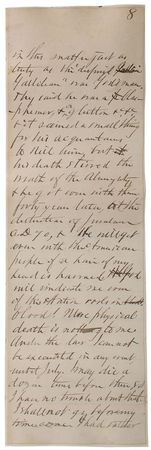 8
in this matter just as
truly as the despised
Galilean" was God's man.
They said he was a
& c
& it seemed a small thing
for his acquaintances
to kill him, but
his death stirred the
wrath of the Almighty
& he got even with them
forty years later at the
destruction of Jerusalem
A.D. 70, & He will get
even with the American
people if a hair of my
head is harmed
will indicate
of this
blood! Mere physical
death is nothing to me
Under the law I cannot
be executed in any event
until July. I may die a
dozen times before then yet
I have no trouble about that
I shall not go before my
time comes. I had rather